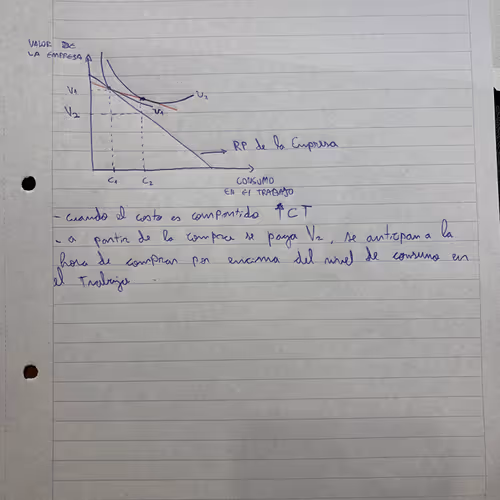 VALOR DE
LA EMPRESA
V1
V2
U2
U1
R.P de la Empresa
C1
C2
CONSUMO
EN El TRABAJO
- cuando el costo es compartido ↑CT
- a partir de la compra se paga V2, se anticipan a la
hora de comprar por encima del nivel de consumo en
el trabajo.